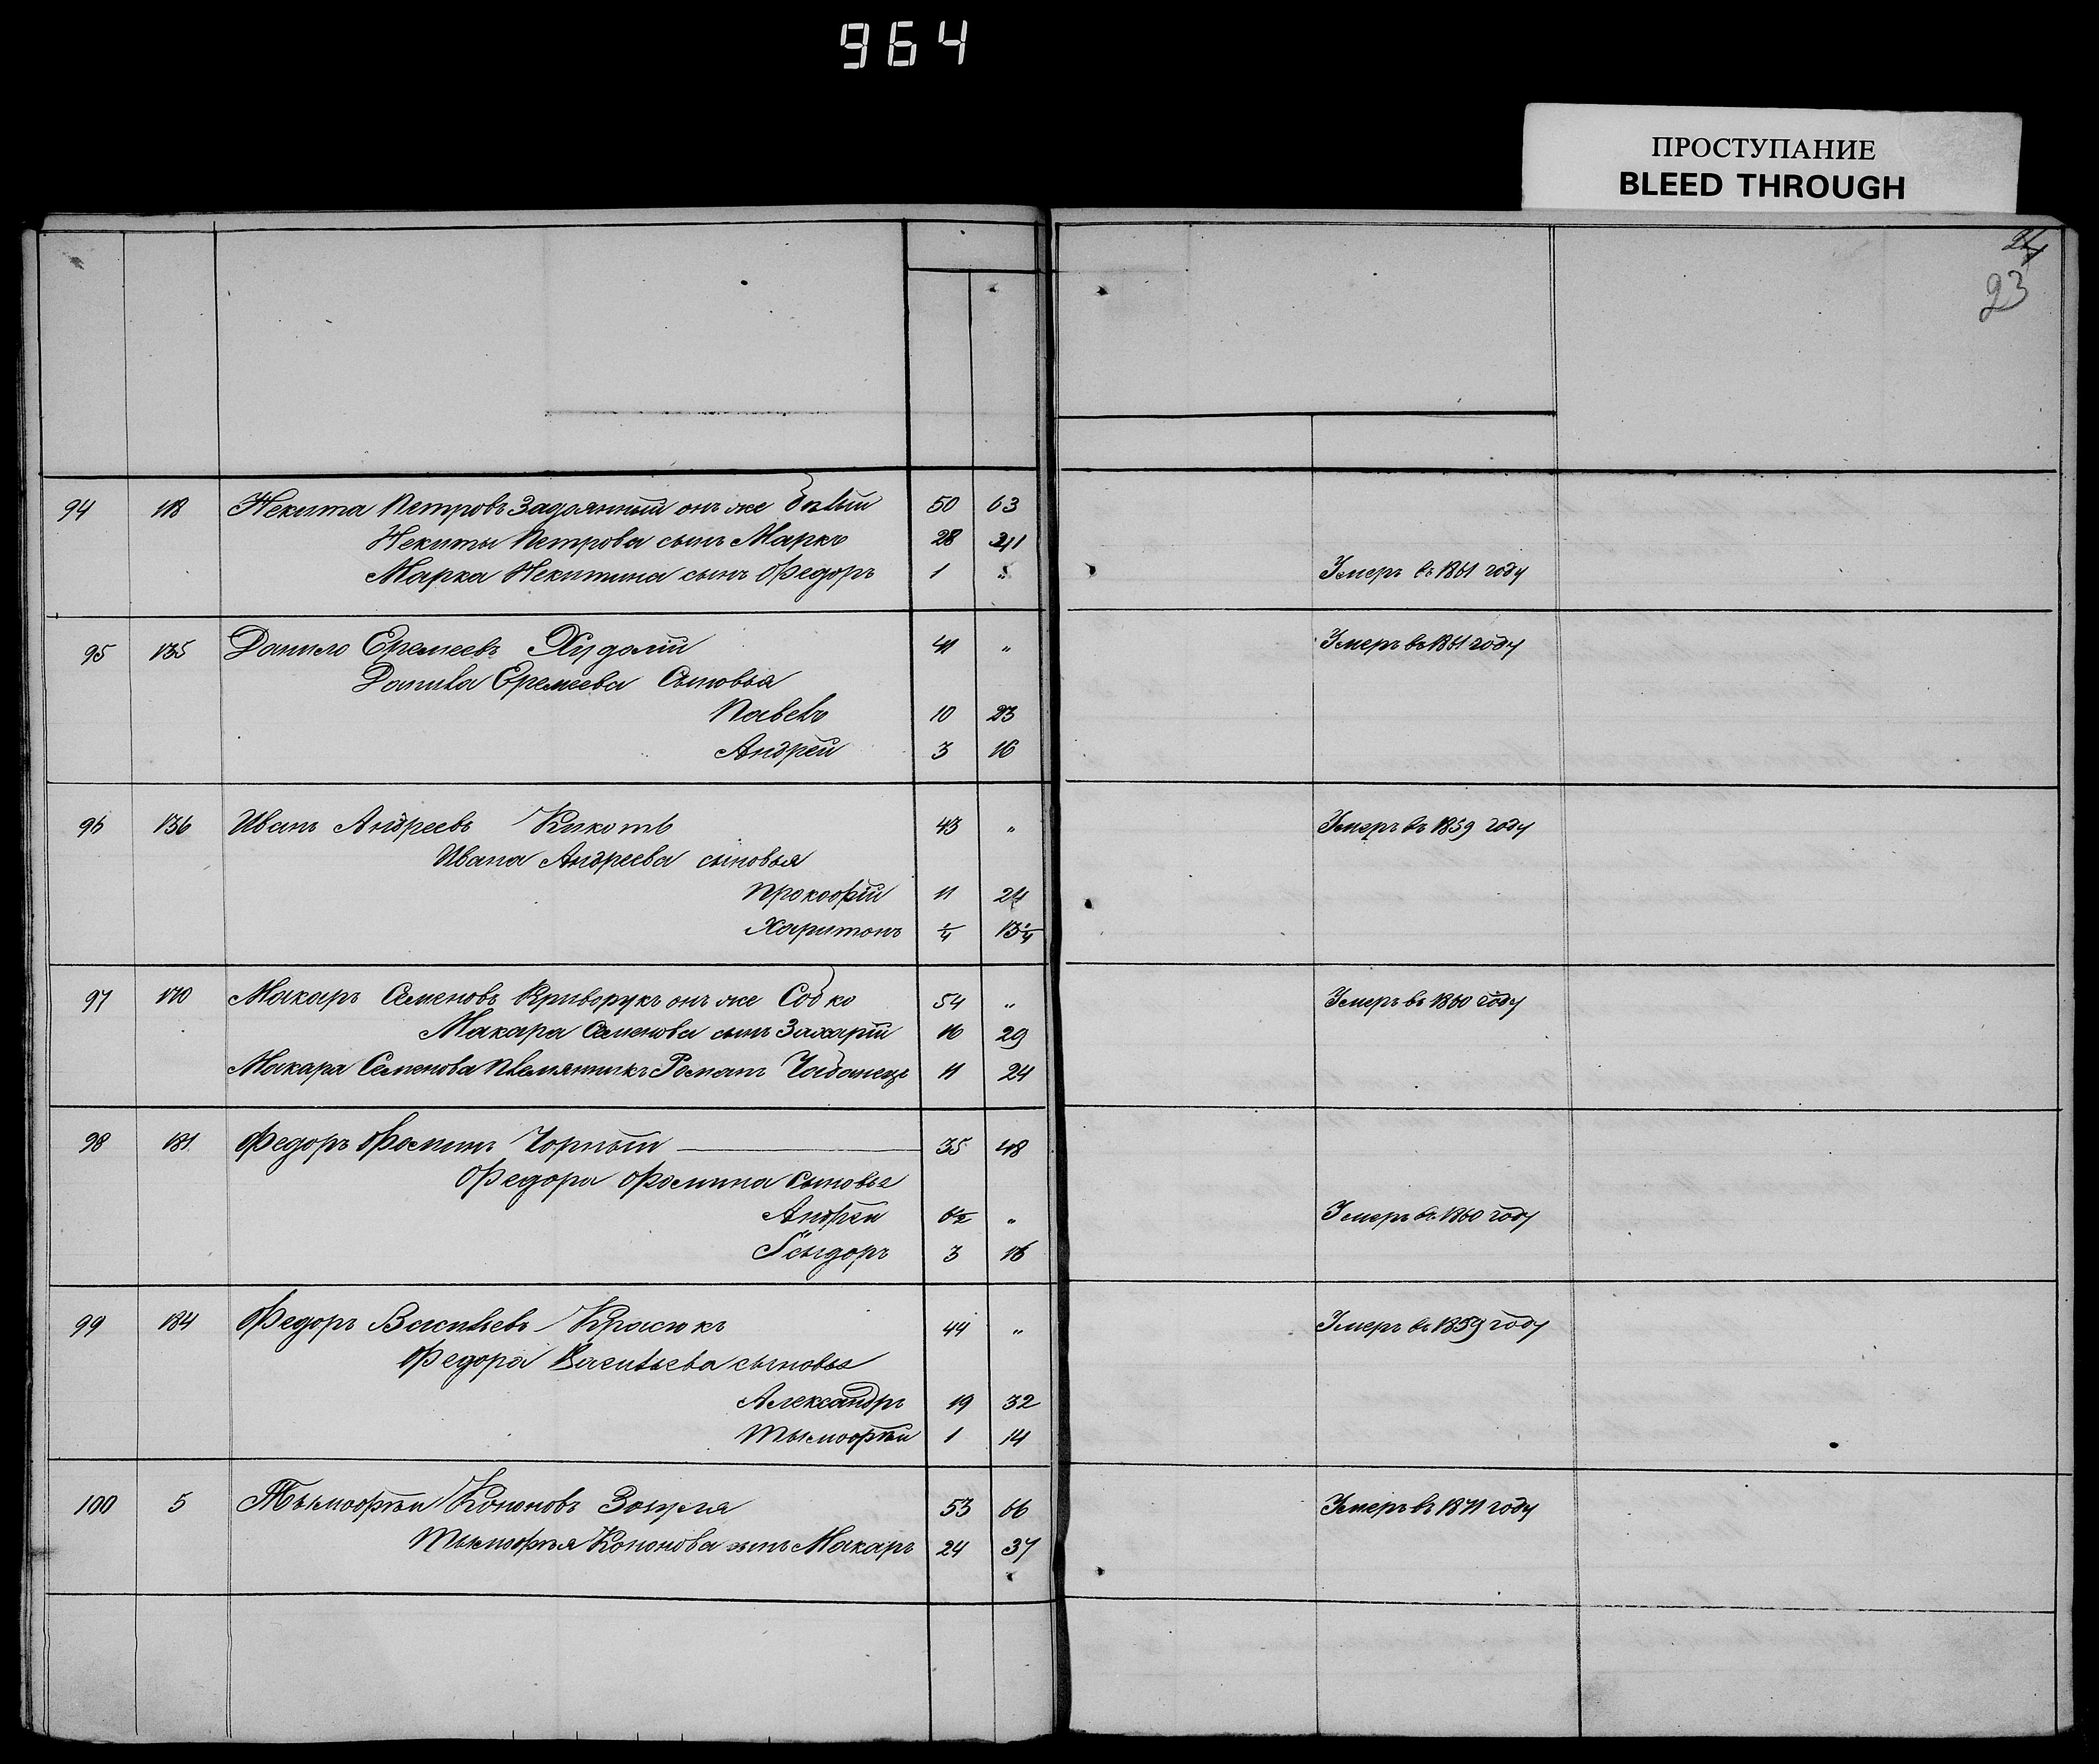 964
ПРОСТУПАНИЕ
BLEED THROUGH
24
23
94 118 Некита Петровъ Задоянный онъ же Бѣлый 50 63
Некиты Петрова сынъ Марко 28 41
Марка Некитина сынъ Федоръ 1 „ Умеръ въ 1861 году
95 135 Данило Еремеевъ Худолій 41 „ Умеръ въ 1861 году
Данила Еремеева Сыновья
Павелъ 10 23
Андрей 3 16
96 136 Иванъ Андреевъ Кикоть 43 „ Умеръ въ 1859 году
Ивана Андреева сыновья
Прокофій 11 24
Харитонъ ¼ 13¼
97 170 Макаръ Семеновъ Криворукъ онъ же Собко 54 „ Умеръ въ 1860 году
Макара Семенова сынъ Захарій 16 29
Макара Семенова племянникъ Романъ Чабанецъ 11 24
98 181 Федоръ Фоминъ Чорный 35 48
Федора Фомина Сыновья
Андрей 6½ „ Умеръ въ 1860 году
Сыдоръ 3 16
99 184 Федоръ Васильевъ Красюкъ 44 „ Умеръ въ 1859 году
Федора Васильева сыновья
Александръ 19 32
Тымофѣй 1 14
100 5 Тымофѣй Кононовъ Зозуля 53 66 Умеръ въ 1871 году
Тымофѣя Кононова сынъ Макаръ 24 37